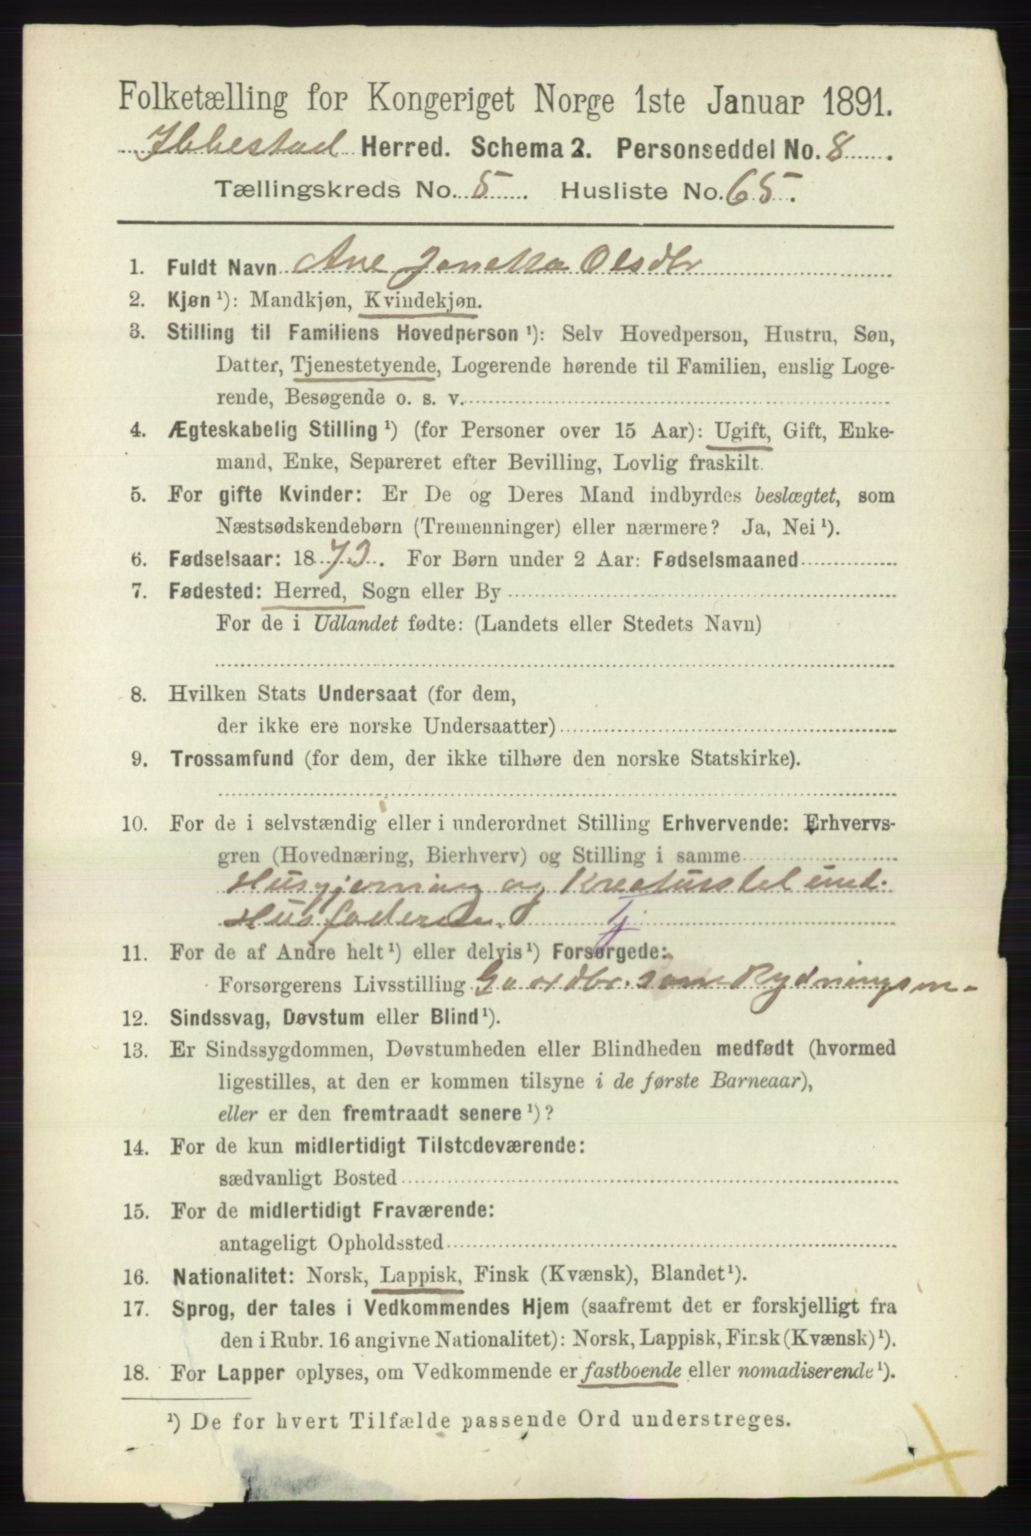 Folketælling for Kongeriget Norge 1ste Januar 1891.
Ibbestad Herred. Schema 2. Personseddel No. 8.
Tællingskreds No. 5. Husliste No. 65.
1. Fuldt Navn Ane Olsdtr
2. Kjøn ¹): Mandkjøn, Kvindekjøn.
3. Stilling til Familiens Hovedperson ¹): Selv Hovedperson, Hustru, Søn,
Datter, Tjenestetyende, Logerende hørende til Familien, enslig Loge-
rende, Besøgende o. s. v.
4. Ægteskabelig Stilling ¹) (for Personer over 15 Aar): Ugift, Gift, Enke-
mand, Enke, Separeret efter Bevilling, Lovlig fraskilt.
5. For gifte Kvinder: Er De og Deres Mand indbyrdes beslægtet, som
Næstsødskendebørn (Tremenninger) eller nærmere? Ja, Nei ¹).
6. Fødselsaar: 1873. For Børn under 2 Aar: Fødselsmaaned
7. Fødested: Herred, Sogn eller By
For de i Udlandet fødte: (Landets eller Stedets Navn)
8. Hvilken Stats Undersaat (for dem,
der ikke ere norske Undersaatter)
9. Trossamfund (for dem, der ikke tilhøre den norske Statskirke).
10. For de i selvstændig eller i underordnet Stilling Erhvervende: Erhvervs-
gren (Hovednæring, Bierhverv) og Stilling i samme
Husgjerning og Kreaturstel und.
Husfaderen. tj.
11. For de af Andre helt ¹) eller delvis ¹) Forsørgede:
Forsørgerens Livsstilling Gaardbr. som Rydningsm-
12. Sindssvag, Døvstum eller Blind ¹).
13. Er Sindssygdommen, Døvstumheden eller Blindheden medfødt (hvormed
ligestilles, at den er kommen tilsyne i de første Barneaar),
eller er den fremtraadt senere ¹)?
14. For de kun midlertidigt Tilstedeværende:
sædvanligt Bosted
15. For de midlertidigt Fraværende:
antageligt Opholdssted
16. Nationalitet: Norsk, Lappisk, Finsk (Kvænsk), Blandet ¹).
17. Sprog, der tales i Vedkommendes Hjem (saafremt det er forskjelligt fra
den i Rubr. 16 angivne Nationalitet): Norsk, Lappisk, Finsk (Kvænsk) ¹).
18. For Lapper oplyses, om Vedkommende er fastboende eller nomadiserende ¹).
¹) De for hvert Tilfælde passende Ord understreges.